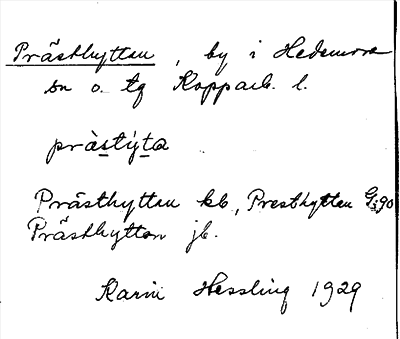 Prästhyttan, by i Hedemora
sn o. tg Kopparb. l.
pràstýta
Prästhyttan kb, Presthyttan G
Prästhyttan jb.
Karin Hessling 1929